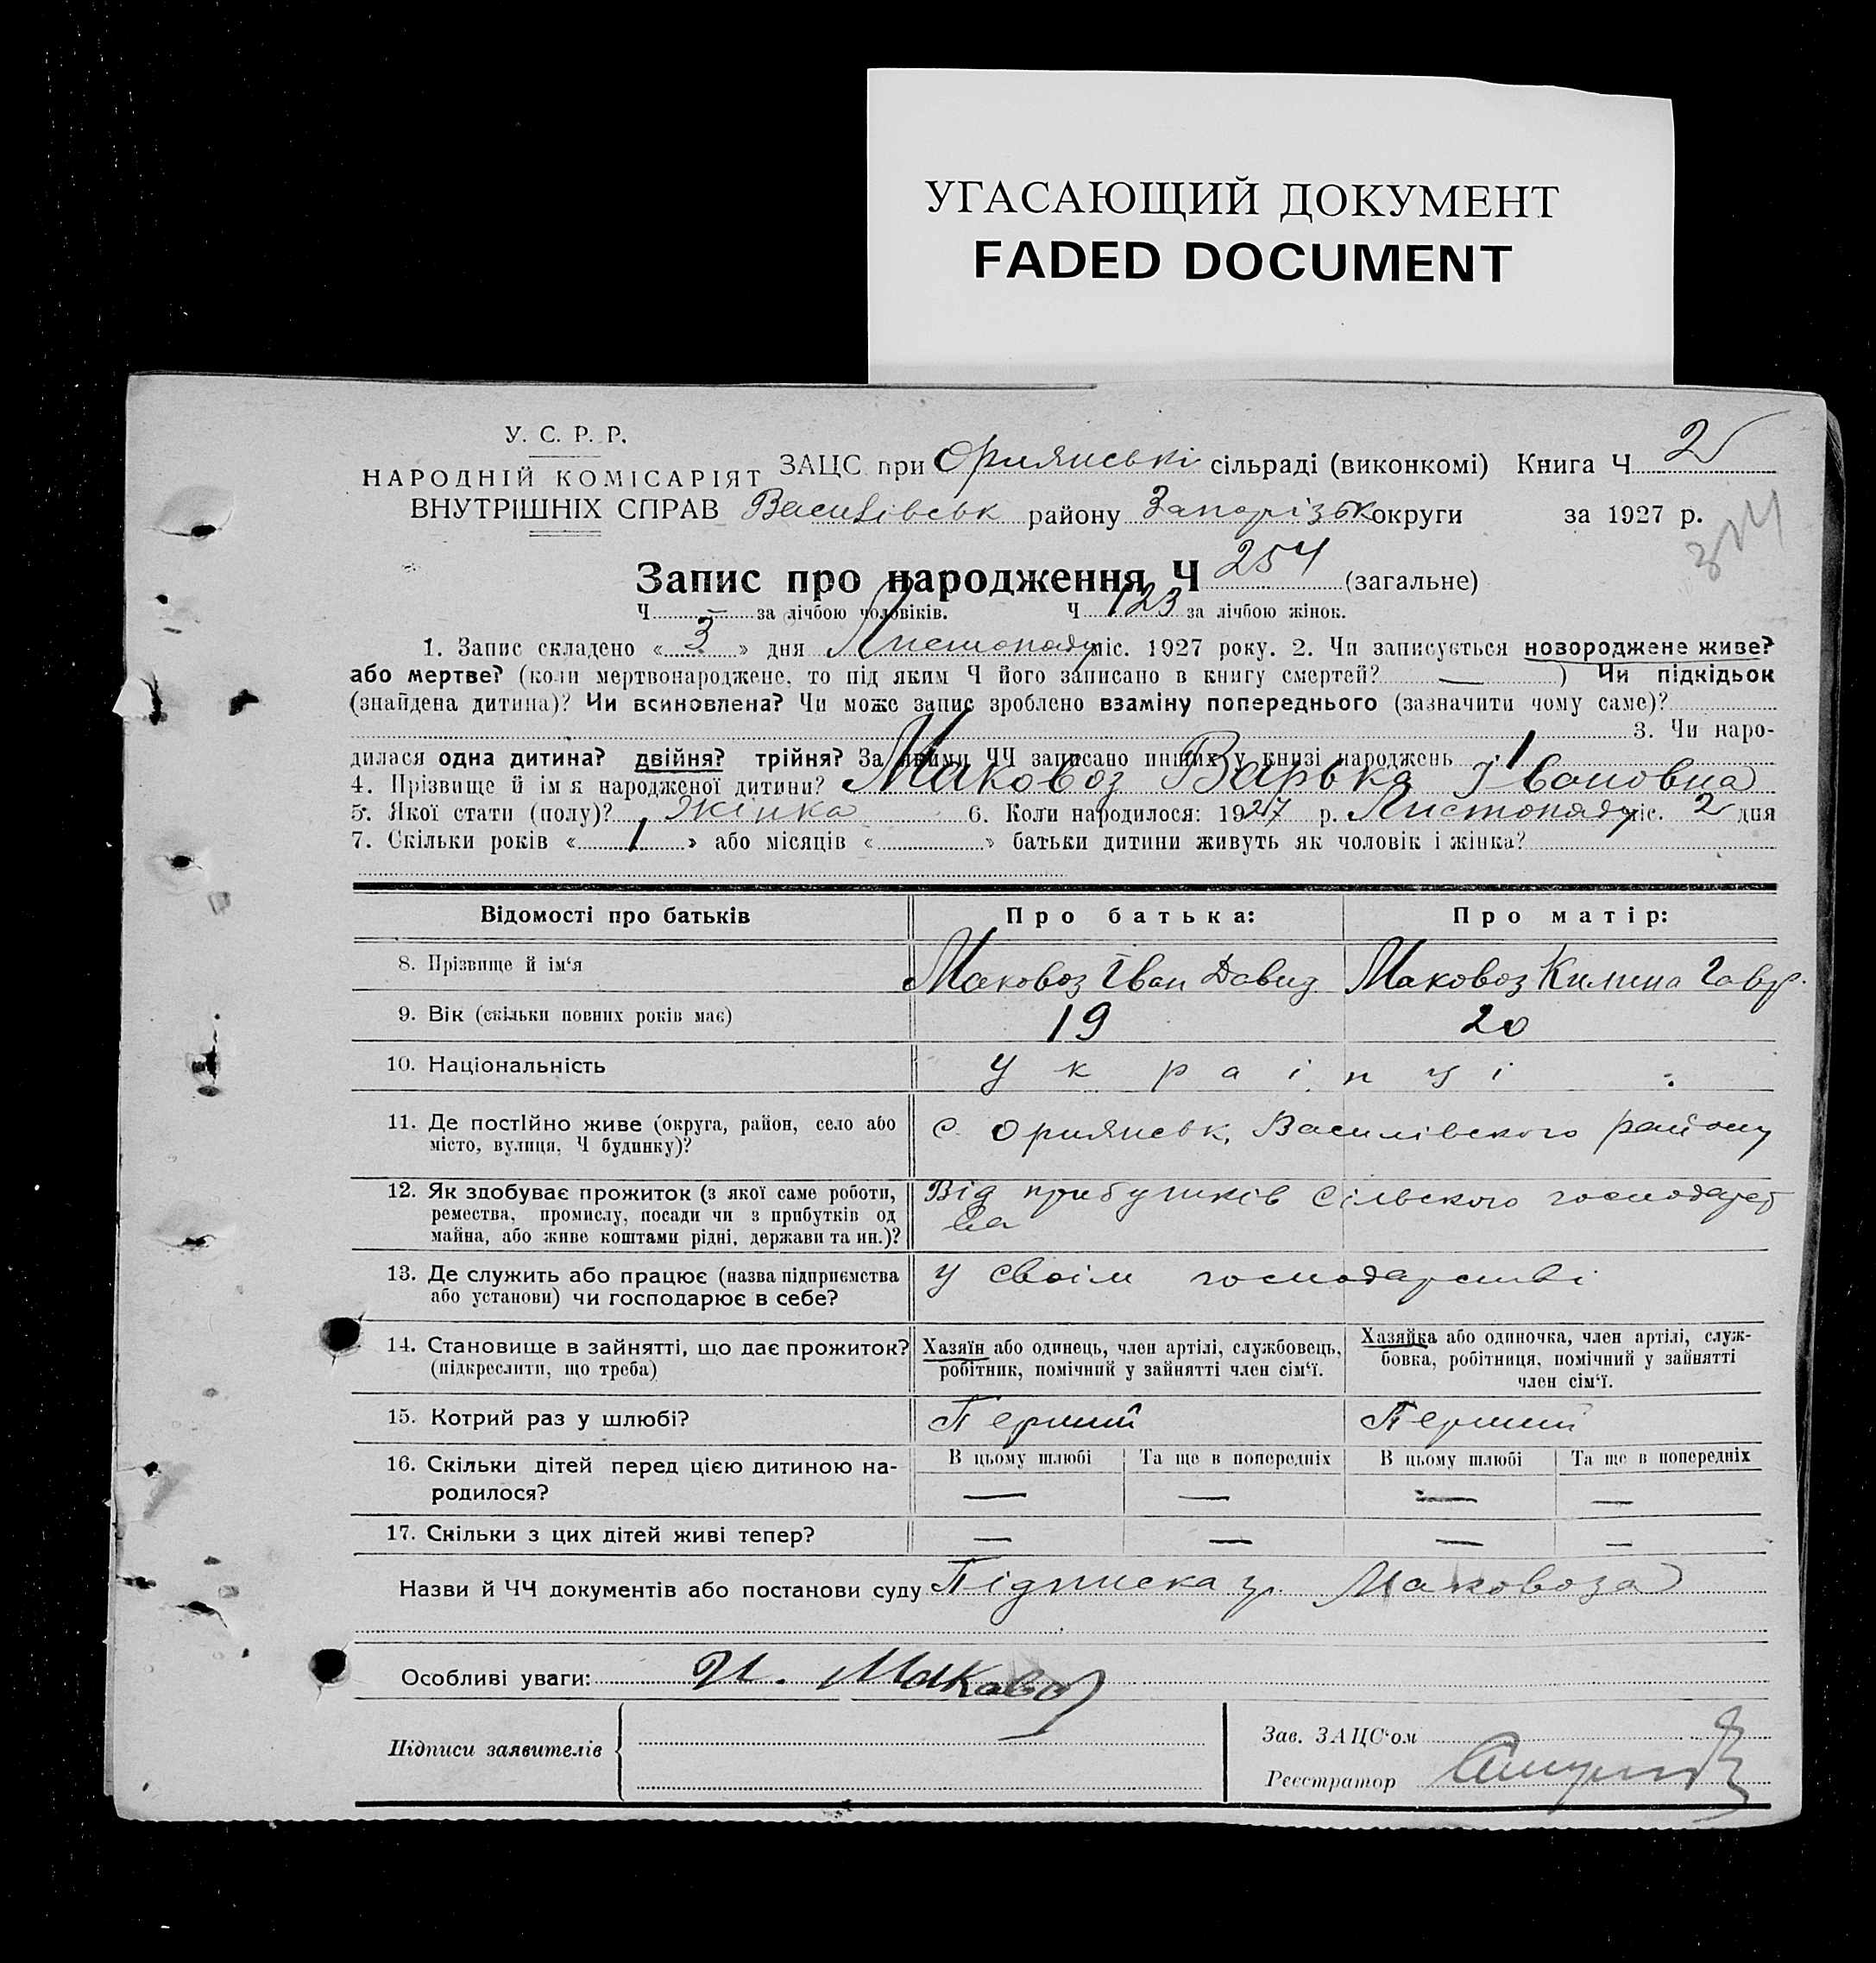 УГАСАЮЩИЙ ДОКУМЕНТ
FADED DOCUMENT
У. С. Р. Р.
НАРОДНІЙ КОМІСАРІЯТ
ВНУТРІШНІХ СПРАВ
ЗАЦС при Орлянські сільраді (виконкомі) Книга Ч 2
Василівськ району Запорізьк округи за 1927 р.
Запис про народження Ч 254 (загальне)
Ч — за лічбою чоловіків. Ч 123 за лічбою жінок.
1. Запис складено «3» дня Листопаду міс. 1927 року. 2. Чи записується новороджене живе?
або мертве? (коли мертвонароджене, то під яким Ч його записано в книгу смертей? — ) Чи підкідьок
(знайдена дитина)? Чи всиновлена? Чи може запис зроблено взаміну попереднього (зазначити чому саме)?
3. Чи наро-
дилася одна дитина? двійня? трійня? За якими ЧЧ записано инших у книзі народжень 1
4. Прізвище й ім'я народженої дитини? Маковоз Варька Івановна
5. Якої стати (полу)? Жінка 6. Коли народилося: 1927 р. Листопаду міс. 2 дня
7. Скільки років «1» або місяців « » батьки дитини живуть як чоловік і жінка?
Відомості про батьків Про батька: Про матір:
8. Прізвище й ім'я Маковоз Іван Давид Маковоз Килина Гавр.
9. Вік (скільки повних років має) 19 20
10. Національність Українці
11. Де постійно живе (округа, район, село або
місто, вулиця, Ч будинку)?
с. Орлянськ, Василівского району
12. Як здобуває прожиток (з якої саме роботи,
ремества, промислу, посади чи з прибутків од
майна, або живе коштами рідні, держави та ин.)?
Від прибутків сільского господарст
ва
13. Де служить або працює (назва підприємства
або установи) чи господарює в себе?
У своїм господарстві
14. Становище в зайнятті, що дає прожиток?
(підкреслити, що треба)
Хазяїн або одинець, член артілі, службовець,
робітник, помічний у зайнятті член сім'ї.
Хазяйка або одиночка, член артілі, служ-
бовка, робітниця, помічний у зайнятті
член сім'ї.
15. Котрий раз у шлюбі? Перший Перший
16. Скільки дітей перед цією дитиною на-
родилося?
В цьому шлюбі Та ще в попередніх В цьому шлюбі Та ще в попередніх
— — — —
17. Скільки з цих дітей живі тепер? — — — —
Назви й ЧЧ документів або постанови суду Підписка гр. Маковоза
Особливі уваги: И. Маковоз
Підписи заявителів
Зав. ЗАЦС'ом
Реєстратор